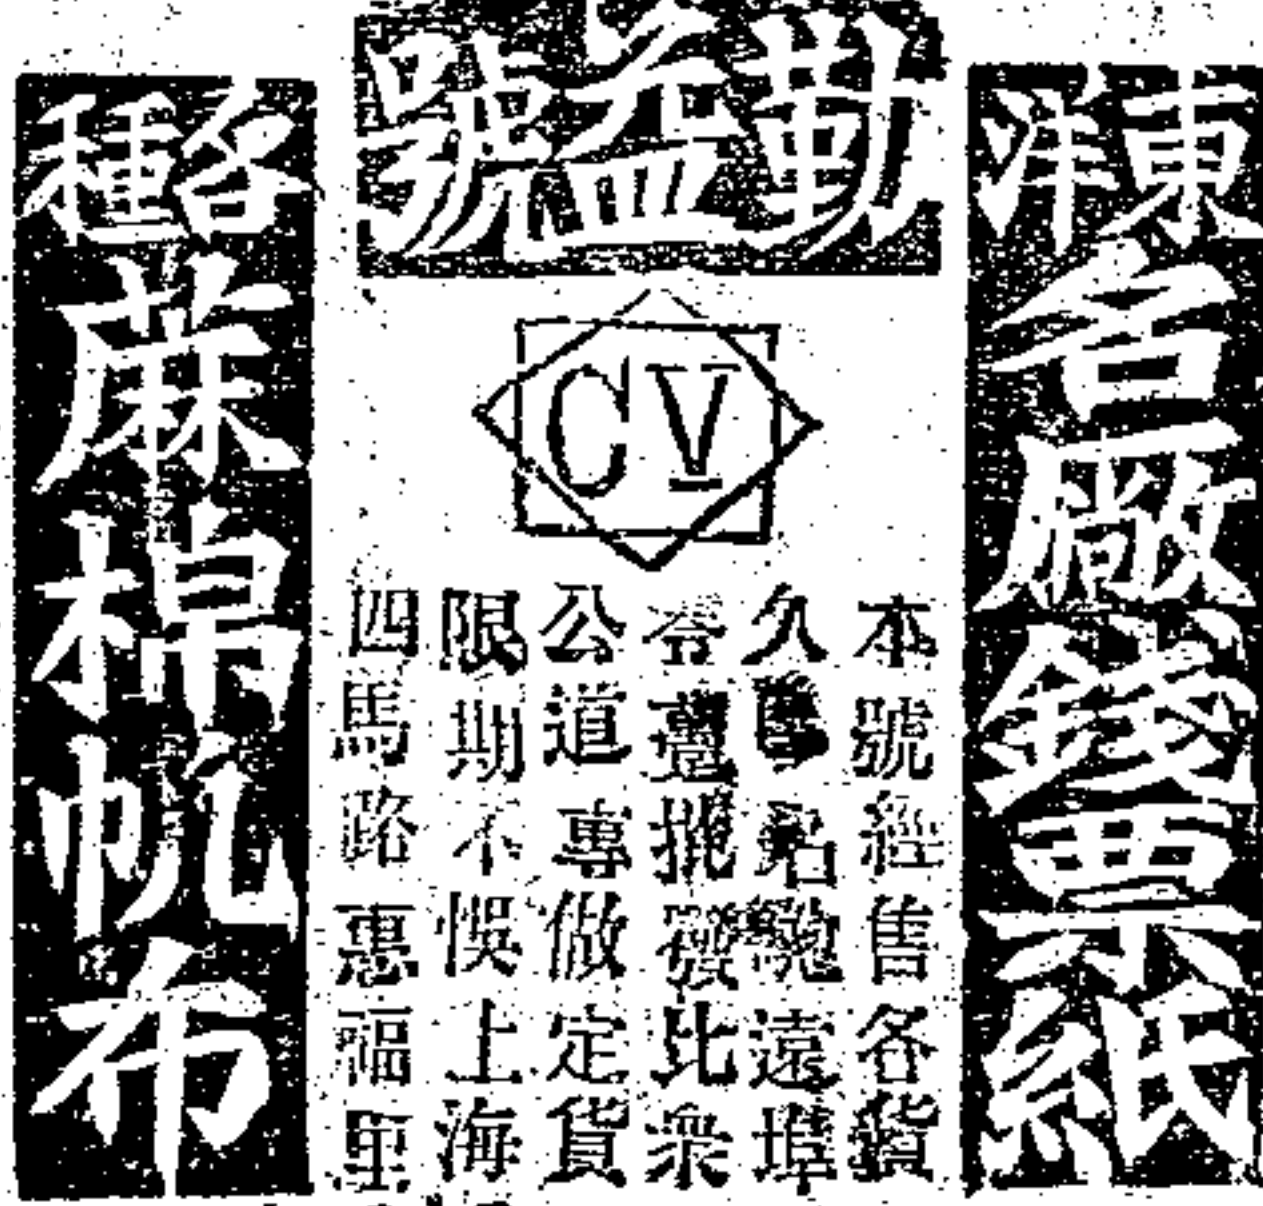 勒益號
東洋名廠錢票紙
CV
本號經售各貨
久名馳遠埠
零躉批發比衆
公道專做定貨
限期不悞上海
四馬路惠福里
各種蔴棉帆布